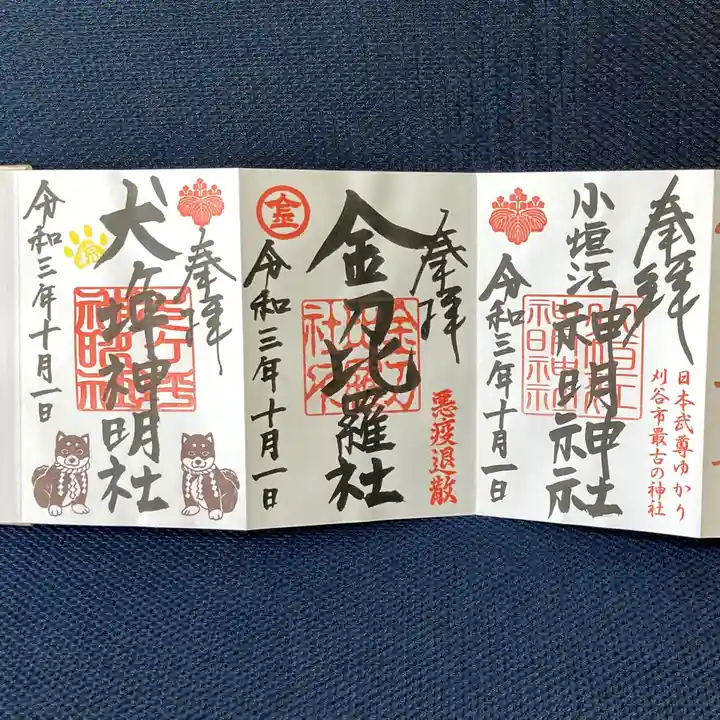 奉拝
日本武尊ゆかり
刈谷市最古の神社
小垣江
神明神社
令和三年十月一日
奉拝
悪疫退散
金刀比羅社
金
令和三年十月一日
奉拝
犬ヶ坪神明社
令和三年十月一日